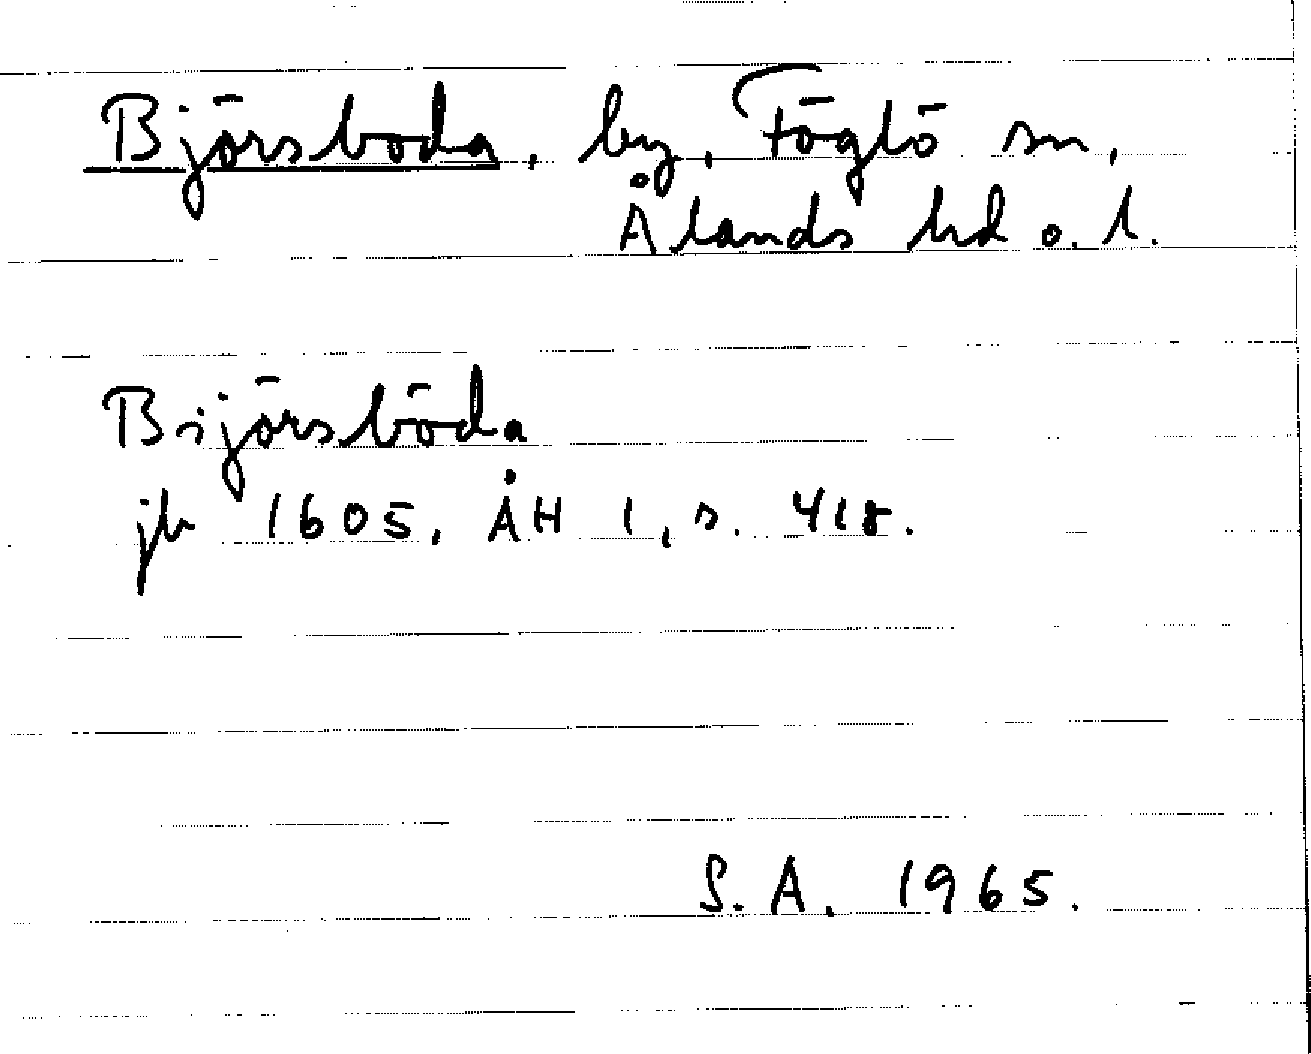 Björsboda, by, Föglö sn,
Ålands hd o. l.
Bijörsböda
jb 1605, ÅH 1, s. 418.
S. A. 1965.